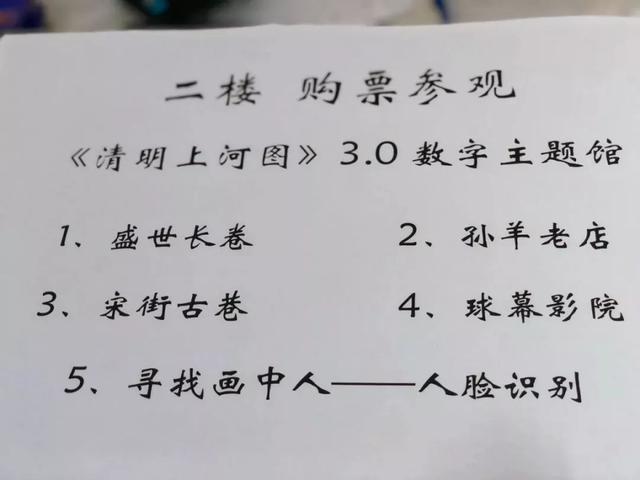 二楼 购票参观
《清明上河图》3.0 数字主题馆
1、盛世长卷 2、孙羊老店
3、宋街古巷 4、球幕影院
5、寻找画中人——人脸识别